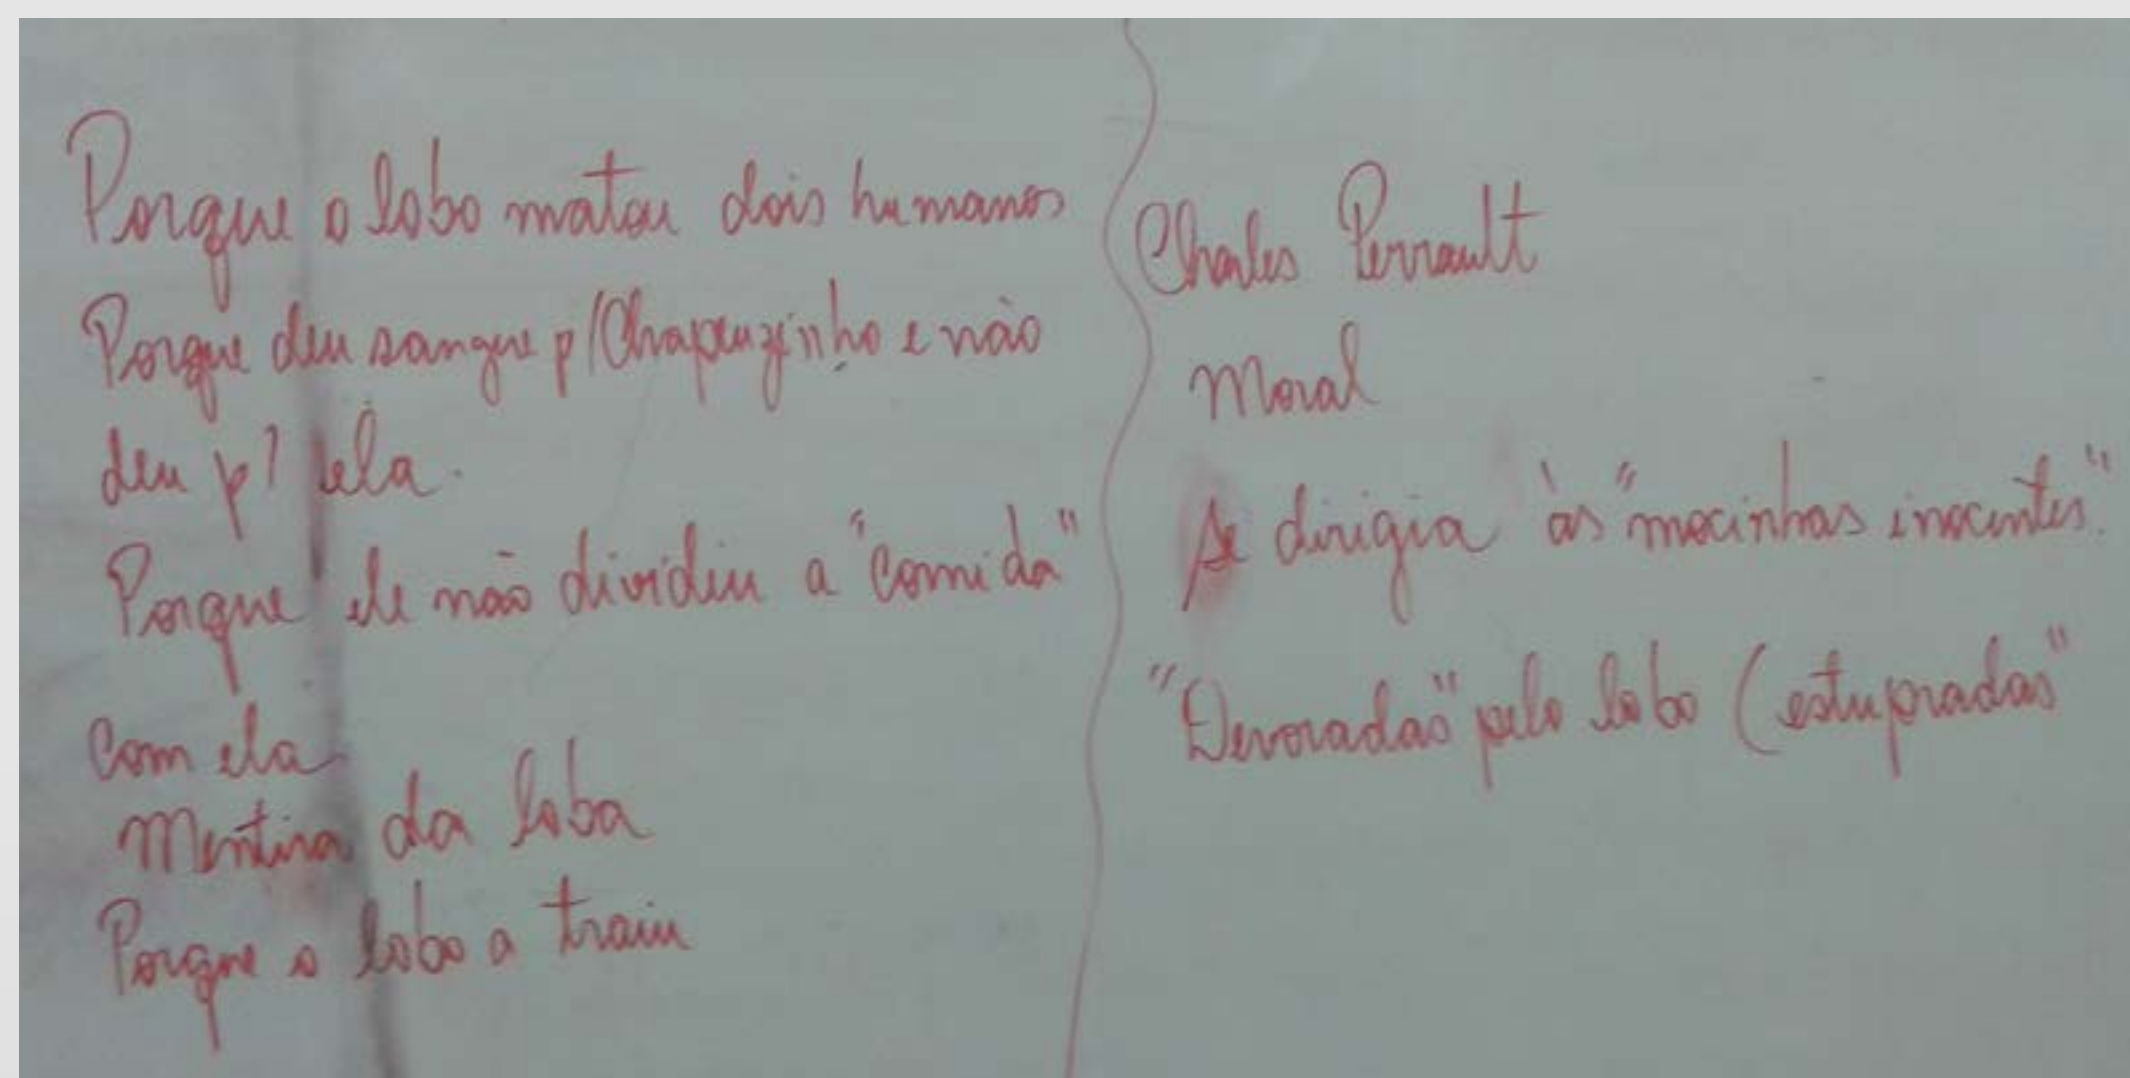 Porque o lobo matou dois humanos
Porque deu sangue p/ Chapeuzinho e não
deu p/ ela.
Porque ele não dividiu a "comida"
com ela
Mentira da loba
Porque o lobo a traiu
Charles Perrault
Moral
Se dirigia às "mocinhas inocentes."
"Devoradas" pelo lobo (estupradas"